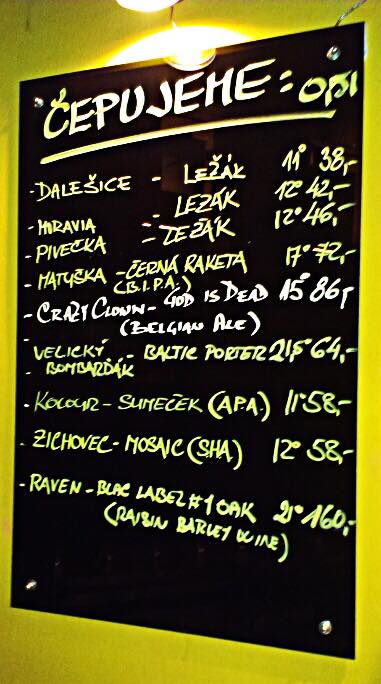 ČEPUJEME: 0,5l
- DALEŠICE - LEŽÁK 11° 38,-
- MORAVIA - LEŽÁK 12° 42,-
- PIVEČKA - LEŽÁK 12° 46,-
- MATYŠKA - ČERNÁ RAKETA 17° 72,-
(B.I.P.A.)
- CRAZY CLOWN - GOD IS DEAD 15° 86,-
(BELGIAN ALE)
- VELICKÝ - BALTIC PORTER 21,5° 64,-
- BOMBARĎÁK
- KOLOUR - SUMEČEK (A.P.A.) 11° 58,-
- ZICHOVEC - MOSAIC (SHA) 12° 58,-
- RAVEN - BLAC LABEL #1 OAK 21° 160,-
(RAISIN BARLEY WINE)